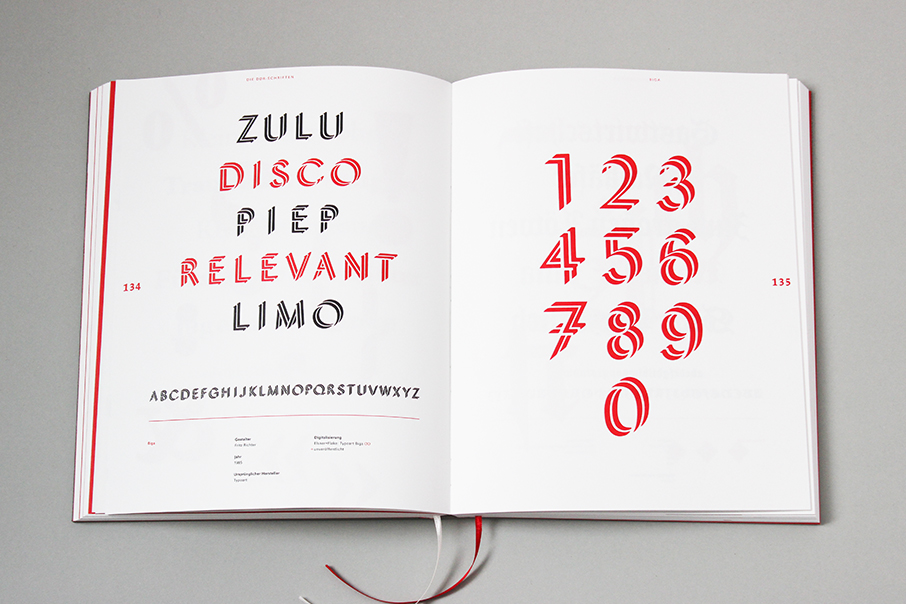 DIE DDR-SCHRIFTEN
ZULU
DISCO
PIEP
RELEVANT
LIMO
134
ABCDEFGHIJKLMNOPQRSTUVWXYZ
Riga
Gestalter
Fritz Richter
Jahr
Ursprünglicher Hersteller
Typoart
Digitalisierung
RIGA
1 2 3
4 5 6
7 8 9
0
135